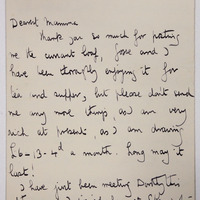 Dearest Mummie
Thank you so much for posting
me the currant loaf, Jose and I
have been thoroughly enjoying it for
tea and supper, but please don't send
me any more things as I am very
rich at present, as I am drawing
£6-13-4d a month. Long may it
last!
I have just been meeting Dorothy